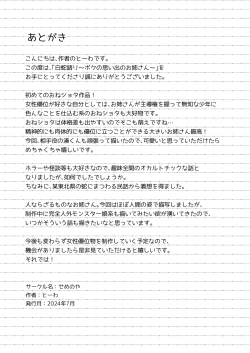 あとがき
こんにちは、作者のとーわです。
この度は、「白蛇語り～ボクの思い出のお姉さん～」を
お手にとってくださり誠にありがとうございました。
初めてのおねショタ作品！
女性優位が好きな自分としては、お姉さんが主導権を握って無知な少年に
色んなことを仕込む系のおねショタも大好物です。
おねショタは体格差も出やすいのでそこも良いですね…
精神的にも肉体的にも優位に立つことができる大きいお姉さん最高！
今回、相手役の湊くんも頑張って描いたので、可愛いと思っていただけたら
めちゃくちゃ嬉しいです。
ホラーや怪談等も大好きなので、趣味全開のオカルトチックな話と
なりましたが、如何でしたでしょうか。
ちなみに、某東北県の蛇にまつわる民話から着想を得ました。
人ならざるものなお姉さん。今回はほぼ人間の姿で描写しましたが、
制作中に完全人外モンスター娘系も描いてみたい欲が湧いてきたので、
いつかそういう話も描きたいなと思っています。
今後も変わらず女性優位物を制作していく予定なので、
機会がありましたら是非見ていただけると嬉しいです。
それでは！
サークル名：せめのや
作者：とーわ
発行月：2024年7月